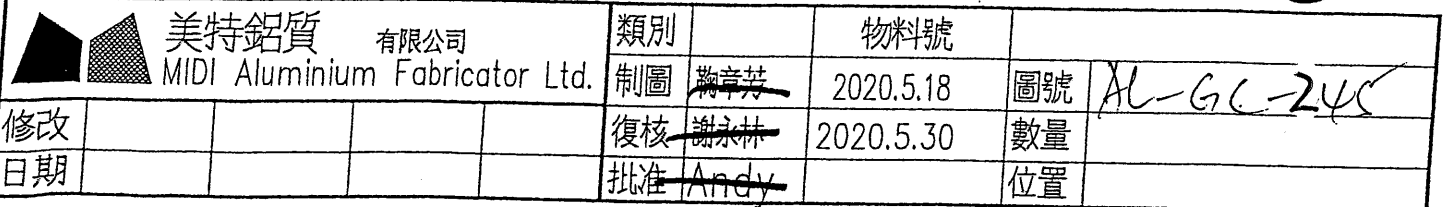 美特鋁質 有限公司
MIDI Aluminium Fabricator Ltd.
類別 物料號
制圖 鞠章芳 2020.5.18 圖號 AL-GC-245
修改 復核 謝永林 2020.5.30 數量
日期 批准 Andy 位置